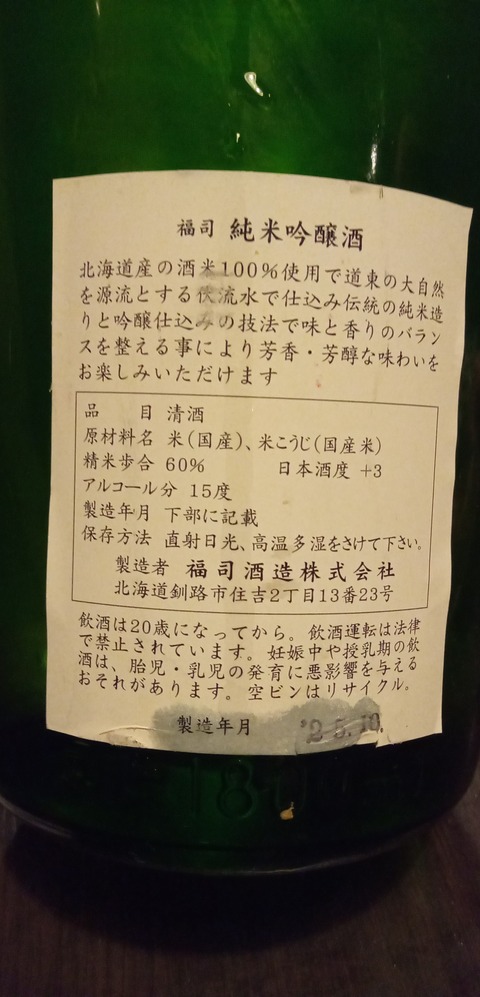 福司 純米吟醸酒
北海道産の酒米100%使用で道東の大自然
を源流とする伏流水で仕込み伝統の純米造
りと吟醸仕込みの技法で味と香りのバラン
スを整える事により芳香・芳醇な味わいを
お楽しみいただけます
品　　目 清酒
原材料名 米(国産)、米こうじ(国産米)
精米歩合 60% 日本酒度 +3
アルコール分 15度
製造年月 下部に記載
保存方法 直射日光、高温多湿をさけて下さい。
製造者 福司酒造株式会社
北海道釧路市住吉2丁目13番23号
飲酒は20歳になってから。飲酒運転は法律
で禁止されています。妊娠中や授乳期の飲
酒は、胎児・乳児の発育に悪影響を与える
おそれがあります。空ビンはリサイクル。
製造年月 '2.5.10.